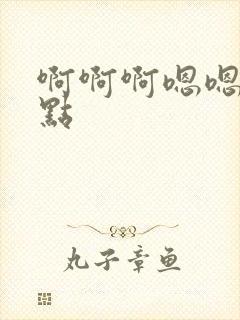 啊啊啊嗯嗯
點
丸子章鱼